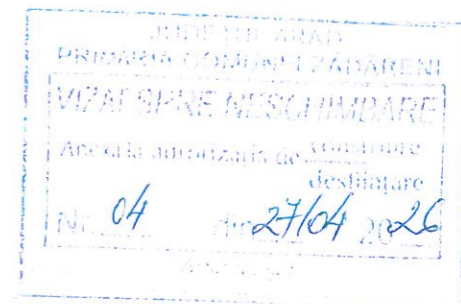 JUDEȚUL ARAD
PRIMĂRIA COMUNEI ZĂDĂRENI
VIZAT SPRE NESCHIMBARE
Anexă la autorizația de construire
desființare
Nr. 04 din 27/04 2026